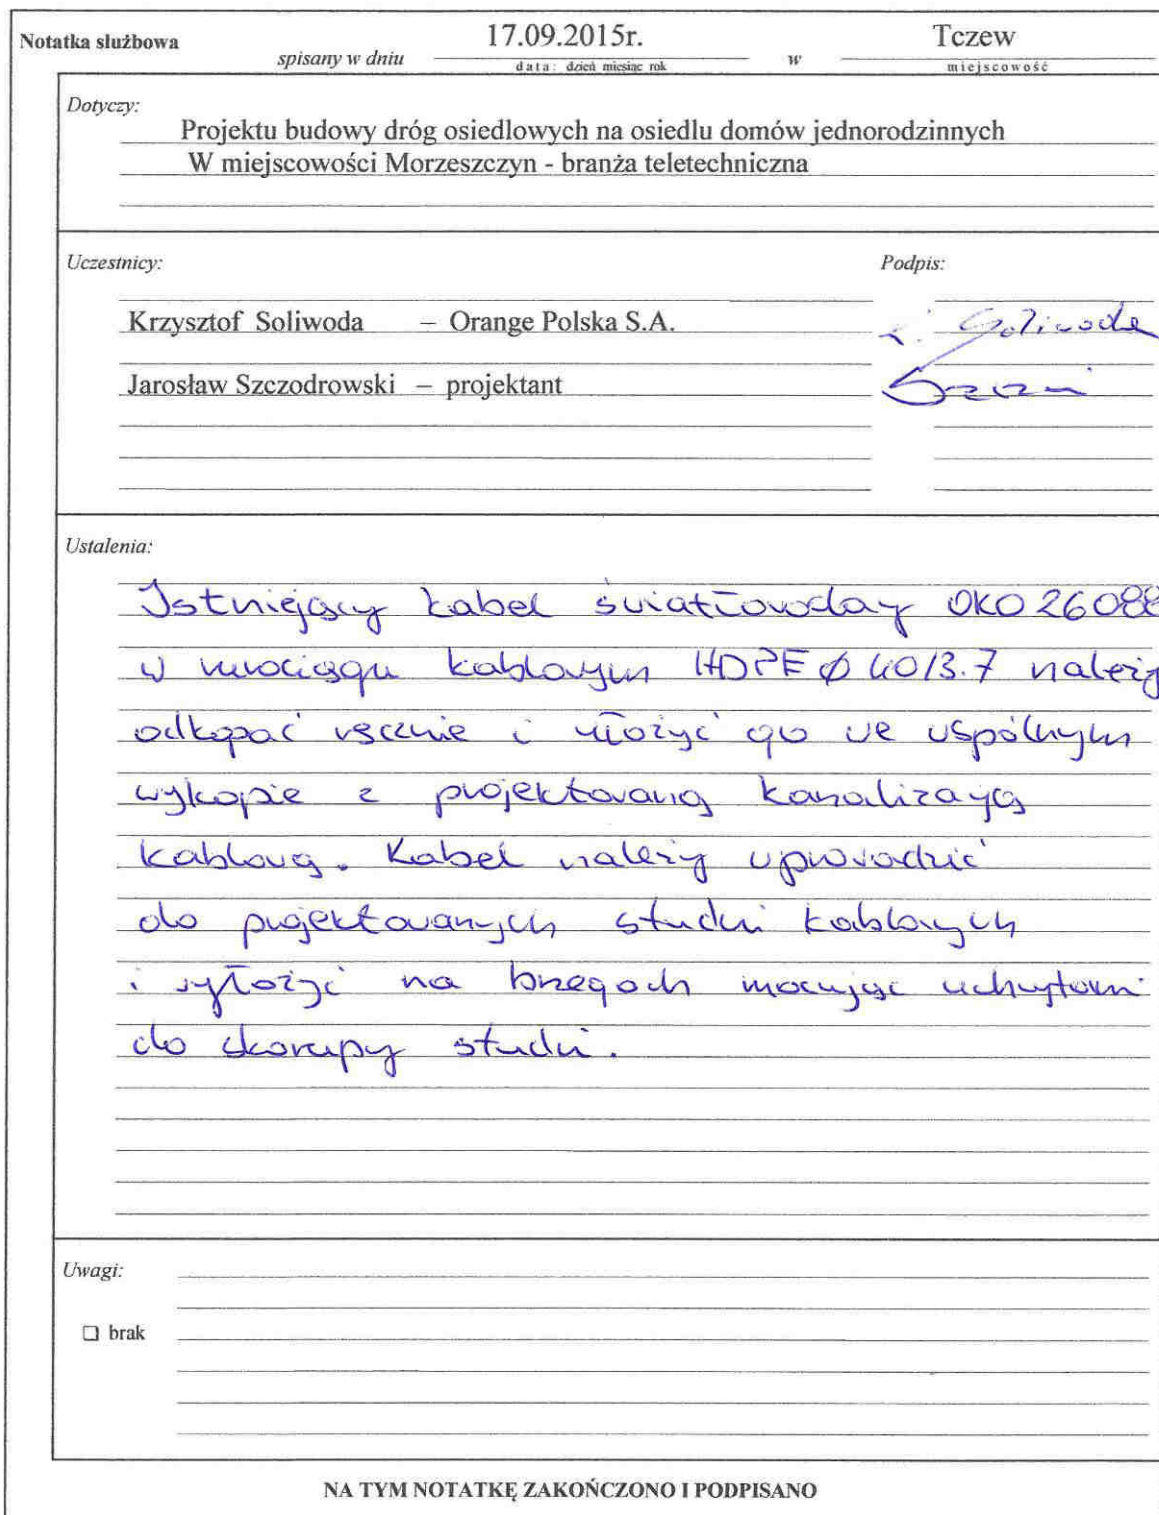 Notatka służbowa
spisany w dniu 17.09.2015r. w Tczew
data: dzień miesiąc rok miejscowość
Dotyczy:
Projektu budowy dróg osiedlowych na osiedlu domów jednorodzinnych
W miejscowości Morzeszczyn - branża teletechniczna
Uczestnicy: Podpis:
Krzysztof Soliwoda – Orange Polska S.A. Soliwoda
Jarosław Szczodrowski – projektant
Ustalenia:
Istniejący kabel światłowodowy OKO 26088
w rurociągu kablowym HDPE Ø 40/3.7 należy
odkopać ręcznie i ułożyć go we wspólnym
wykopie z projektowaną kanalizacją
kablową. Kabel należy wprowadzić
do projektowanych studni kablowych
i wyłożyć na brzegach mocując uchwytami
do skorupy studni.
Uwagi:
brak
NA TYM NOTATKĘ ZAKOŃCZONO I PODPISANO